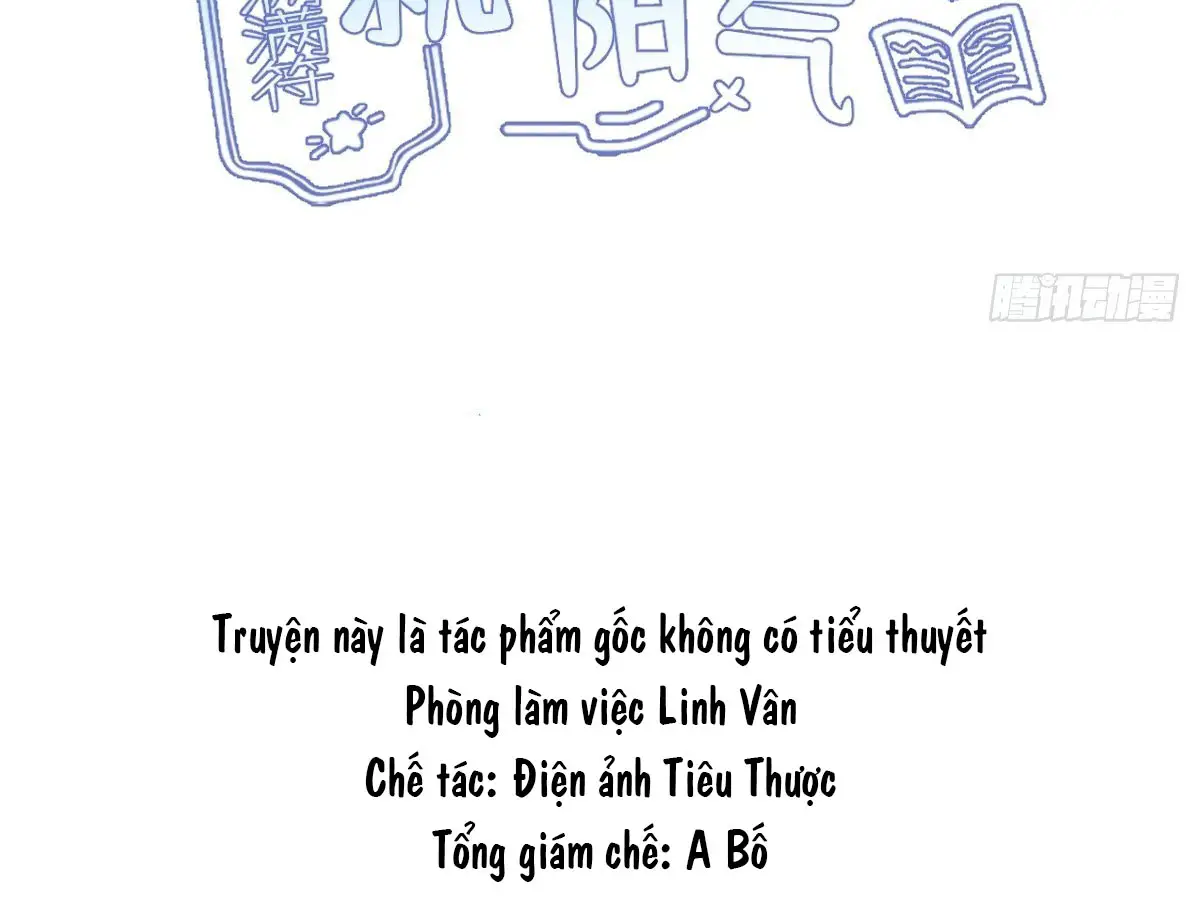 满符
阳气
腾讯动漫
Truyện này là tác phẩm gốc không có tiểu thuyết
Phòng làm việc Linh Vân
Chế tác: Điện ảnh Tiêu Thược
Tổng giám chế: A Bố